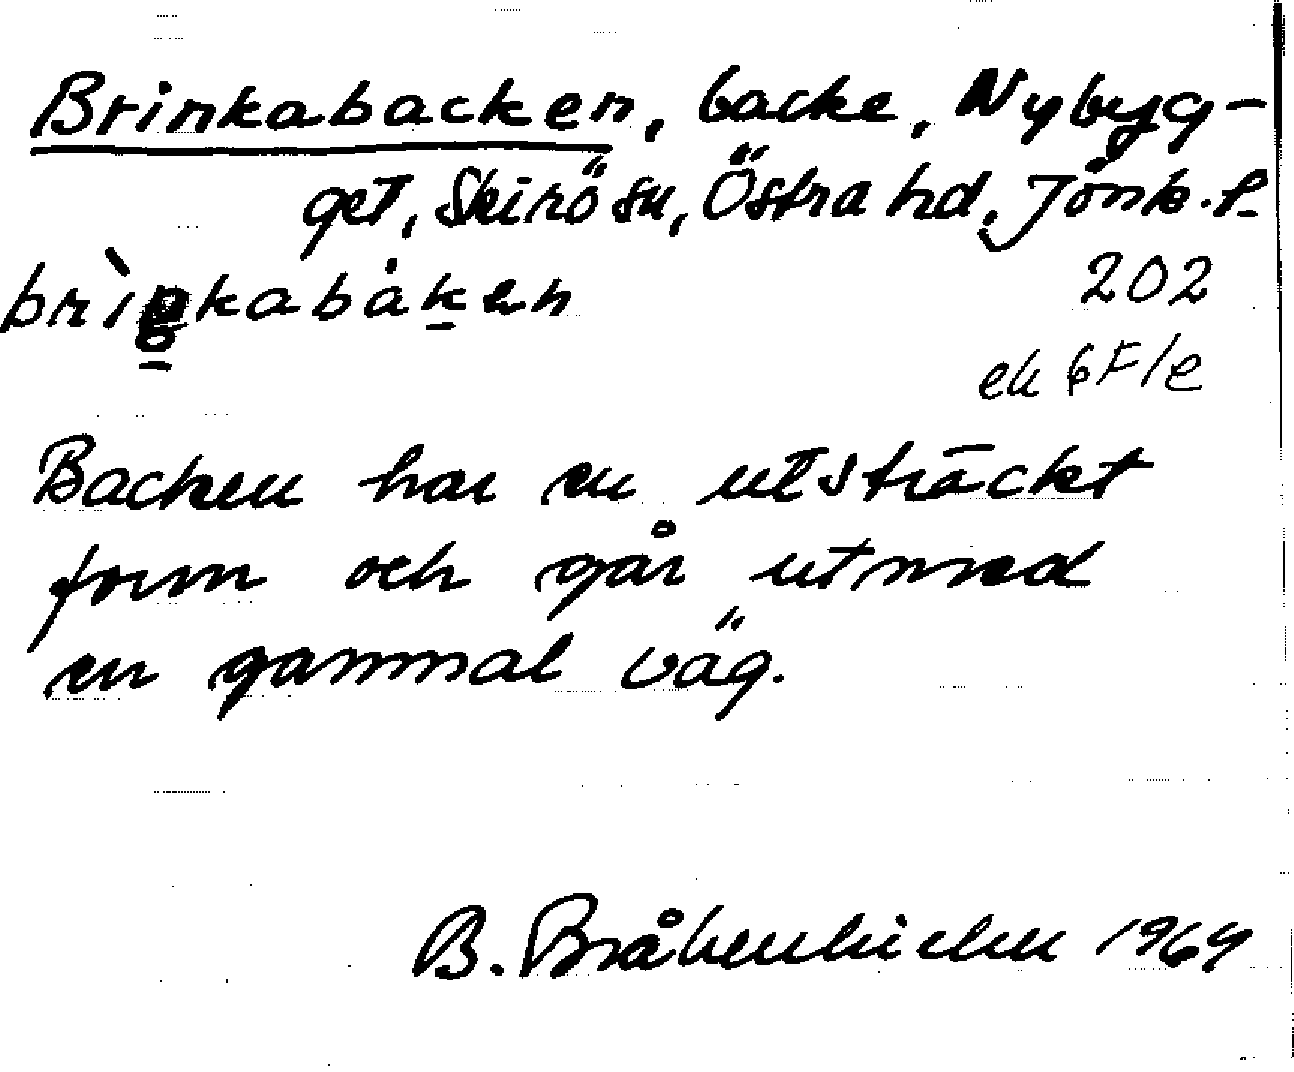 Brinkabacken, backe, Nybyg-
get, Skirö sn, Östra hd, Jönk. l.
brìŋkabåken
202
ek 6F/e
Backen har en utsträckt
form och går utmed
en gammal väg.
B. 1969